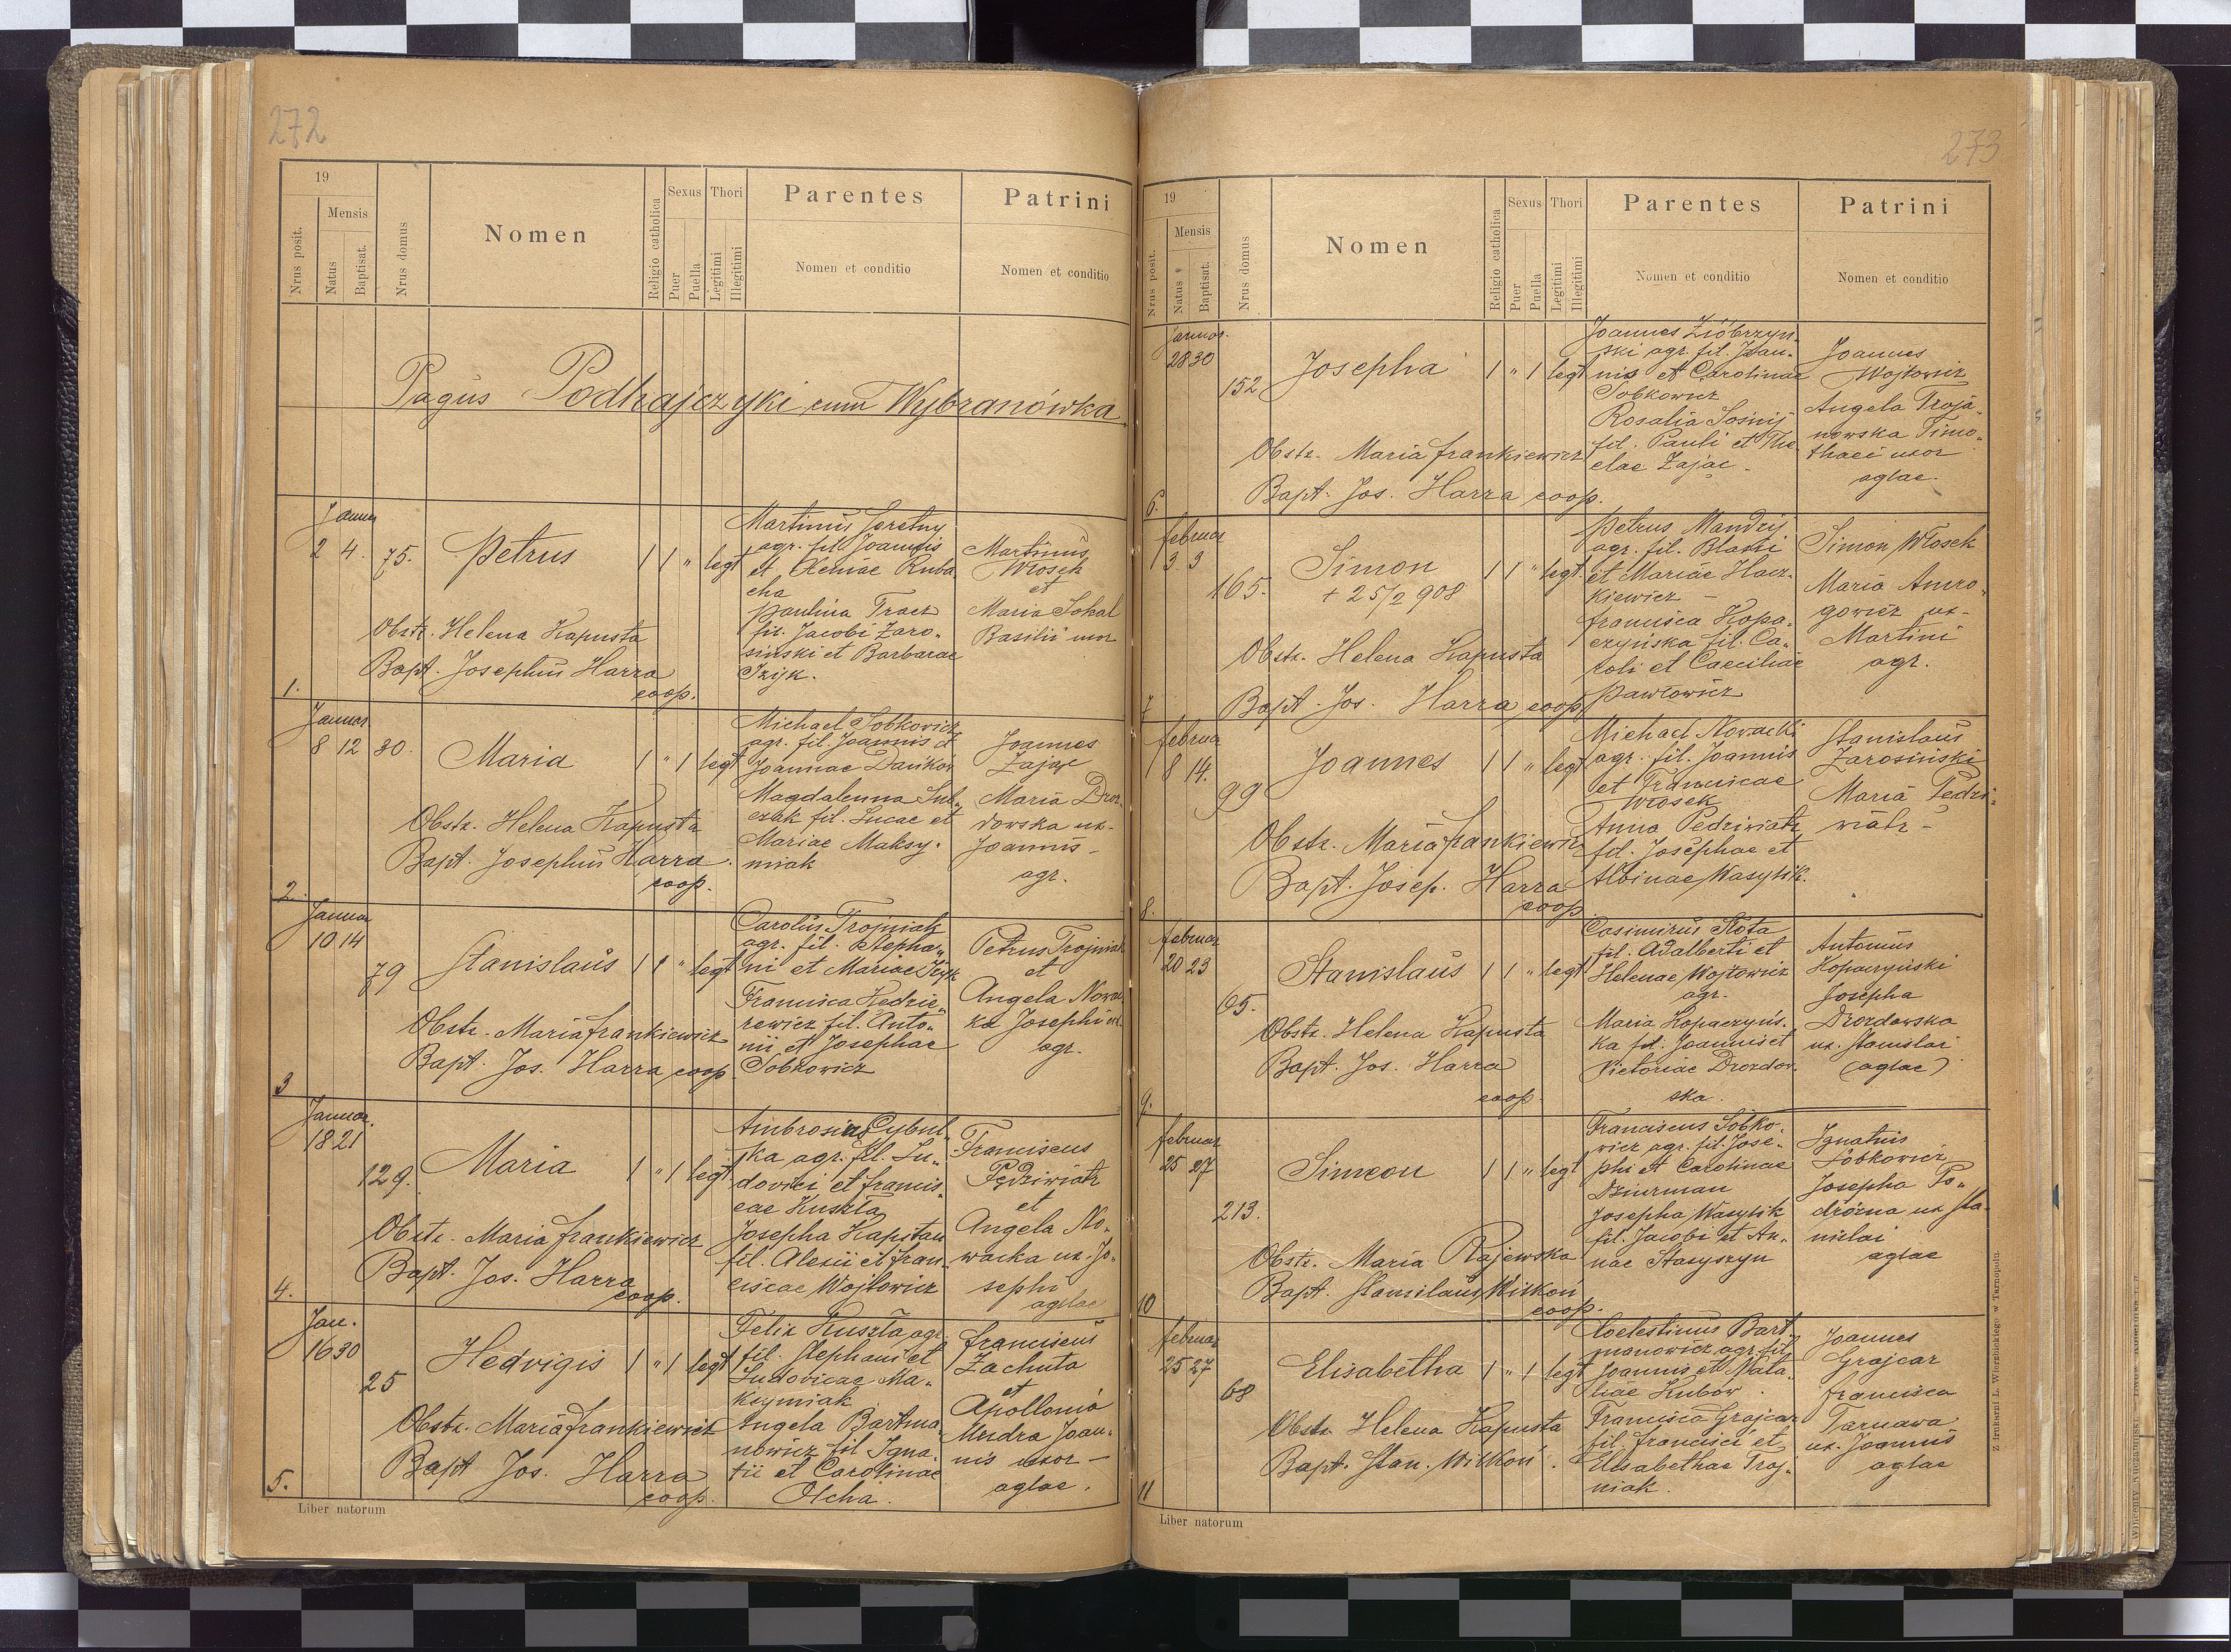 272
19
Nrus posit.
Mensis
Natus
Baptisat.
Nrus domus
Nomen
Religio catholica
Sexus
Puer
Puella
Thori
Legitimi
Illegitimi
Parentes
Nomen et conditio
Patrini
Nomen et conditio
Pagus Podhajczyki cum Wybranówka
1.
Januar
2 4.
75.
Petrus
1 1 " legt
Obstr. Helena Kapusta
Bapt. Josephus Harra
coop.
Martinus
agr. fil. Joannis
et Kuba
cha
Paulina Tracz
fil. Jacobi Zaro-
sinski et Barbarae
Izyk.
Martinus
Włosek
et
Maria Sokal
Basilii uxor
2.
Januar
8 12
30.
Maria
1 " 1 legt
Obstr. Helena Kapusta
Bapt. Josephus Harra
coop.
Michael Sobkowicz
agr. fil. Joannis et
Joannae Dańkow
Magdalenna Sub-
czak fil. Lucae et
Mariae Maksy-
miak
Joannes
Zając
Maria Droz-
dowska ux-
Joannis-
agr.
3
Januar
10 14
79
Stanislaus
1 1 " legt
Obstr. Maria Frankiewicz
Bapt. Jos. Harra coop.
Carolus Trojniak
agr. fil. Stepha-
ni et Mariae Izyk
Francisca Kedzie-
rewicz fil. Anto-
nii et Josephae
Sobkowicz
Petrus Trojniak
et
Angela Nowac-
ka Josephi ux.
agr.
4.
Januar.
18 21
129.
Maria
1 " 1 legt
Obstr. Maria Frankiewicz
Bapt. Jos. Harra
coop.
Ambrosius Cybul-
ka agr. fil. Lu-
dovici et Francis-
cae Kuszta
Josepha Kapitan
fil. Alexii et Fran-
ciscae Wojtowicz
Franciscus
Pędziwiatr
et
Angela No-
wacka ux. Jo-
sephi
aglae
5.
Jan.
16 30
25
Hedvigis
1 " 1 legt
Obstr. Maria Frankiewicz
Bapt Jos. Harra
coop.
Felix Kuszta agr.
fil. Stephani et
Ludovicae Ma-
ksymiak
Angela Bartma-
nowicz fil Igna-
tii et Carolinae
Olcha.
Franciscus
Zachuta
et
Apollonia
Mudra Joan-
nis uxor -
aglae.
Liber natorum
273
19
Nrus posit.
Mensis
Natus
Baptisat.
Nrus domus
Nomen
Religio catholica
Sexus
Puer
Puella
Thori
Legitimi
Illegitimi
Parentes
Nomen et conditio
Patrini
Nomen et conditio
6.
Januar.
28 30
152
Josepha
1 " 1 legt
Obstr. Maria Frankiewicz
Bapt. Jos. Harra coop.
Joannes Zióbrzyn-
ski agr. fil. Joan-
nis et Carolinae
Sobkowicz
Rosalia Sośnij
fil. Pauli et The
clae Zając-
Joannes
Wojtowicz
Angela Troja-
nowska Timo-
thaei uxor
aglae.
7
Februar
3 3
165.
Simon
+ 25/2 908
1 1 " legt.
Obstr. Helena Kapusta
Bapt. Jos. Harra coop.
Petrus Mandzij
agr. fil. Blasii
et Mariae Hacz-
kiewicz -
Francisca Kopa-
czyńska fil. Ca-
roli et Caeciliae
Pawłowicz
Simon Włosek
Maria Amro-
gowicz ux-
Martini
agr.
8.
Februar
8 14.
99
Joannes
1 1 " legt
Obstr. Maria Frankiewicz
Bapt. Josep. Harra
coop.
Michael Nowacki
agr. fil. Joannis
et Franciscae
Włosek
Anna Pedziwiatr
fil. Josephae et
Albinae Wasylik.
Stanislaus
Zarosiński
Maria Pedzi-
wiatr -
9.
Februar
20 23
65.
Stanislaus
1 1 " legt
Obstr. Helena Kapusta
Bapt. Jos. Harra
coop.
Casimirus Słota
fil. Adalberti et
Helenae Wojtowicz
agr.
Maria Kopaczyńs-
ka fil. Joannis et
Victoriae Drozdow-
ska.
Antonius
Kopaczyński
Josepha
Drozdowska
ux. Stanislai
(aglae)
10
Februar
25 27
213.
Simeon
1 1 " legt
Obstr. Maria Rajewska
Bapt. Stanislaus Witkoń
coop.
Franciscus Sobko-
wicz agr. fil. Jose-
phi et Carolinae
Dziurman
Josepha Wasylik
fil. Jacobi et An-
nae Stasyszyn
Ignatius
Sobkowicz
Josepha Po-
dróżna ux Sta-
nislai
aglae
11
Februar
25 27
68
Elisabetha
1 " 1 legt
Obstr. Helena Kapusta
Bapt. Stan. Witkoń.
Coelestinus Bart-
manowicz agr. fil.
Joannis et Nata-
liae Kubów.
Francisca Grajcar
fil. Francisci et
Elisabethae Troj-
niak.
Joannes
Grajcar
Francisca
Tarnawa
ux. Joannis
aglae
Liber natorum
Z drukarni L. Wierzbickiego w Tarnopolu.